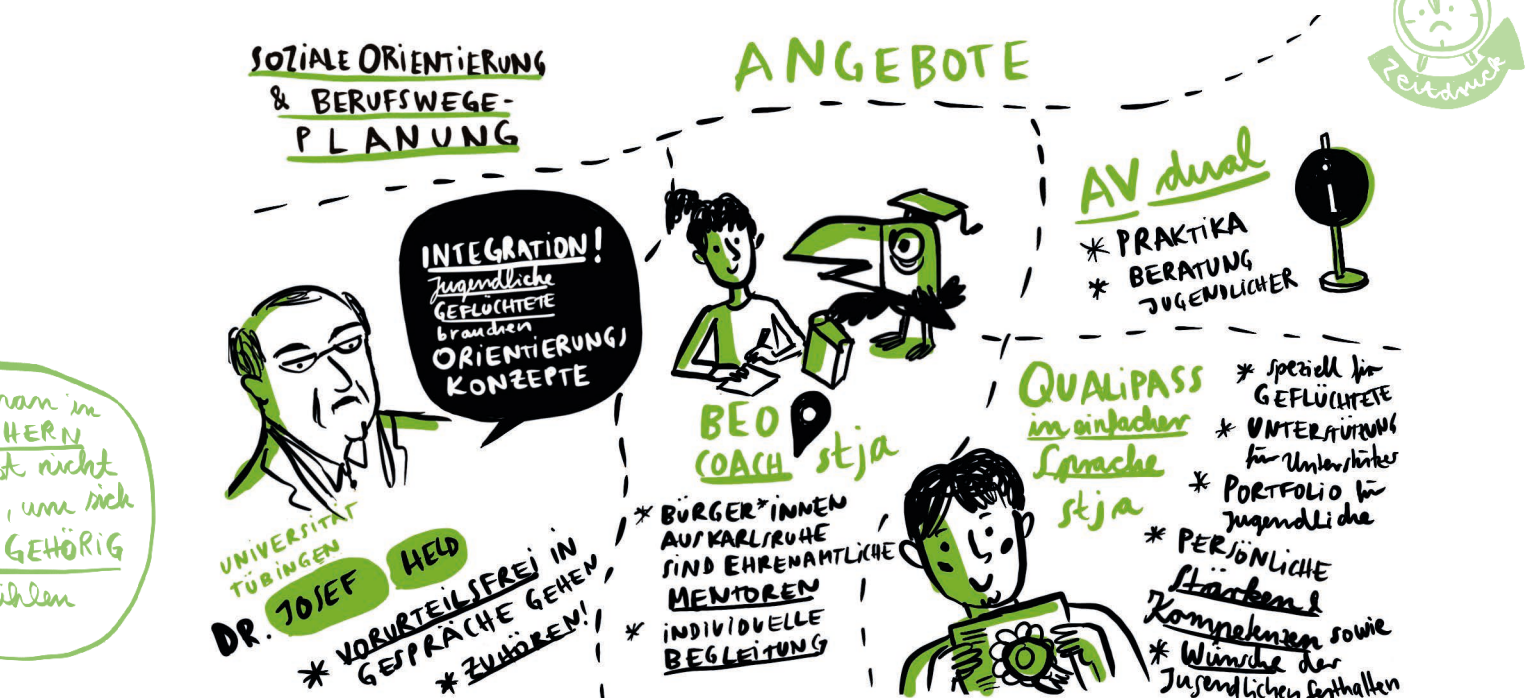 SOZiALE ORiENTiERUNG
& BERUFSWEGE-
PLANUNG
ANGEBOTE
Zeitdruck
INTEGRATION!
Jugendliche
GEFLÜCHTETE
brauchen
ORiENTiERUNGS
KONZEPTE
UNIVERSITÄT
TÜBINGEN
DR. JOSEF HELD
* VORURTEiLSFREi iN
GESPRÄCHE GEHEN
* ZUHÖREN!
BEO
COACH stja
* BÜRGER*iNNEN
AUS KARLSRUHE
SiND EHRENAMTLiCHE
MENTOREN
* iNDiViDUELLE
BEGLEiTUNG
AV dual
* PRAKTiKA
* BERATUNG
JUGENDLiCHER
i
QUALiPASS
in einfacher
Sprache
stja
* speziell für
GEFLÜCHTETE
* UNTERSTÜTZUNG
für Unterstützer
* PORTFOLiO für
Jugendliche
* PERSÖNLiCHE
Stärken &
Kompetenzen sowie
* Wünsche der
Jugendlichen festhalten
in
HERN
nicht
, um sich
GEHÖRiG